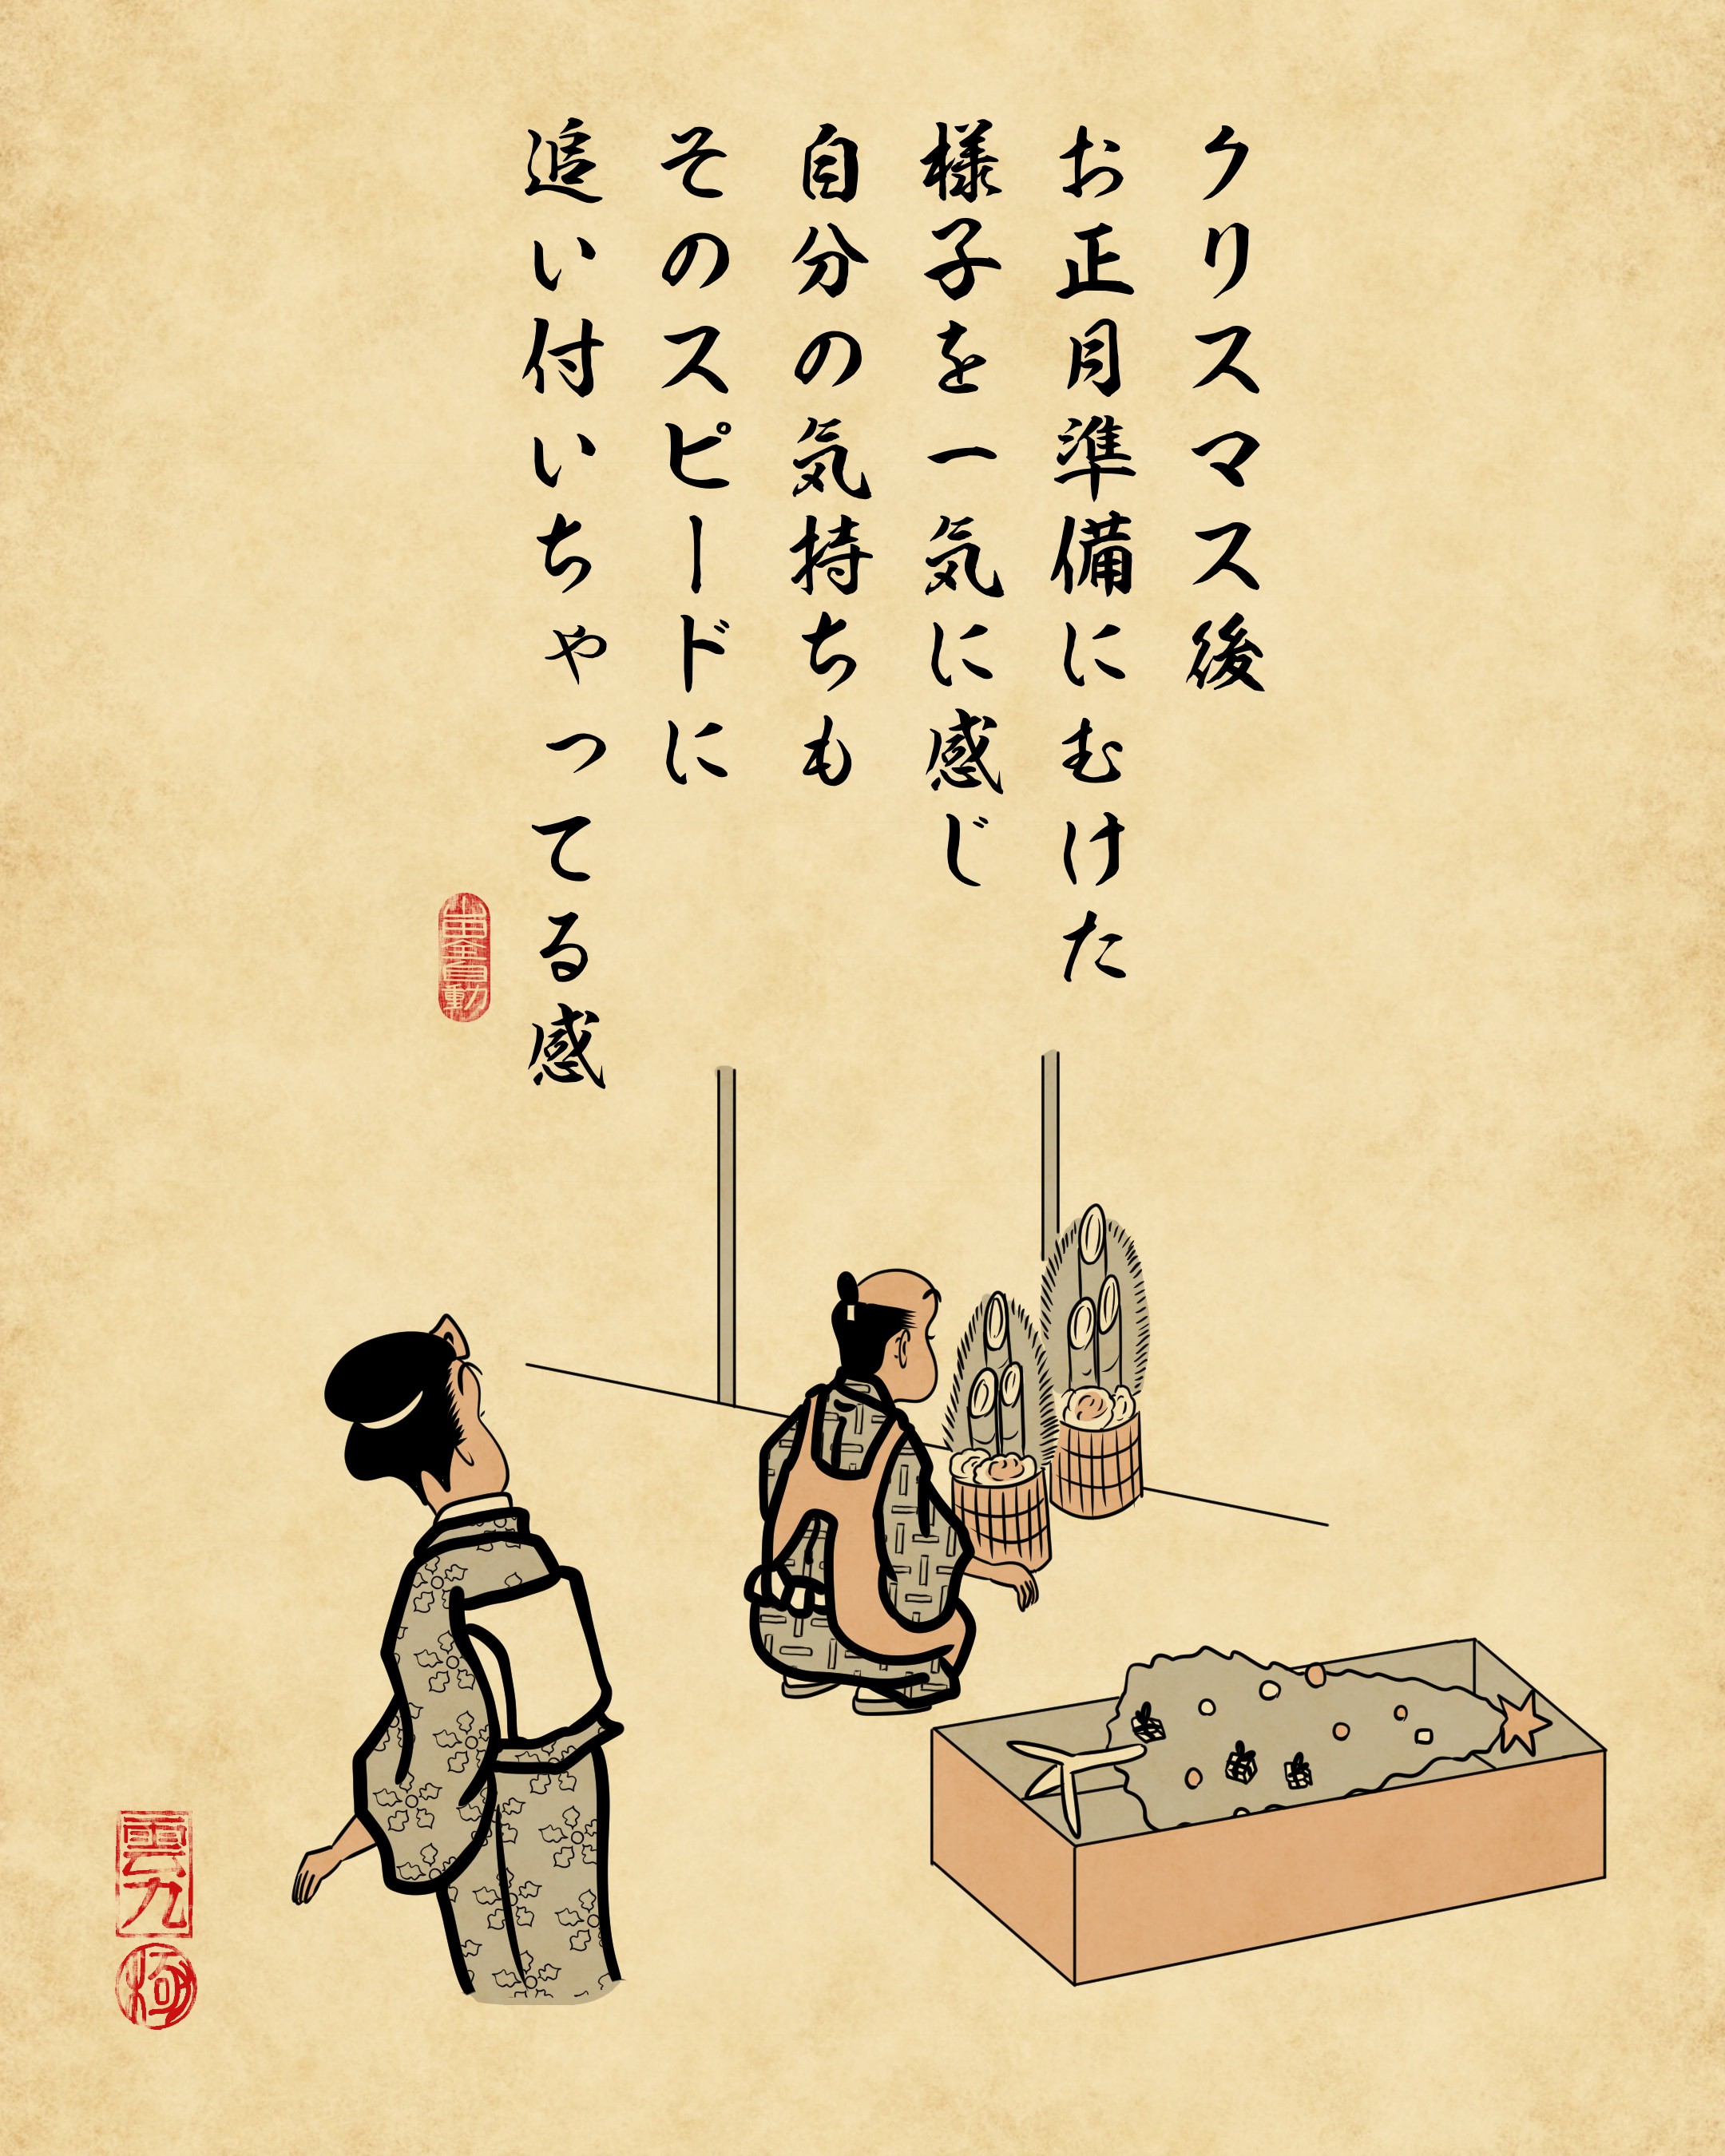 クリスマス後
お正月準備にむけた
様子を一気に感じ
自分の気持ちも
そのスピードに
追い付いちゃってる感
山田全自動
雲丸
極